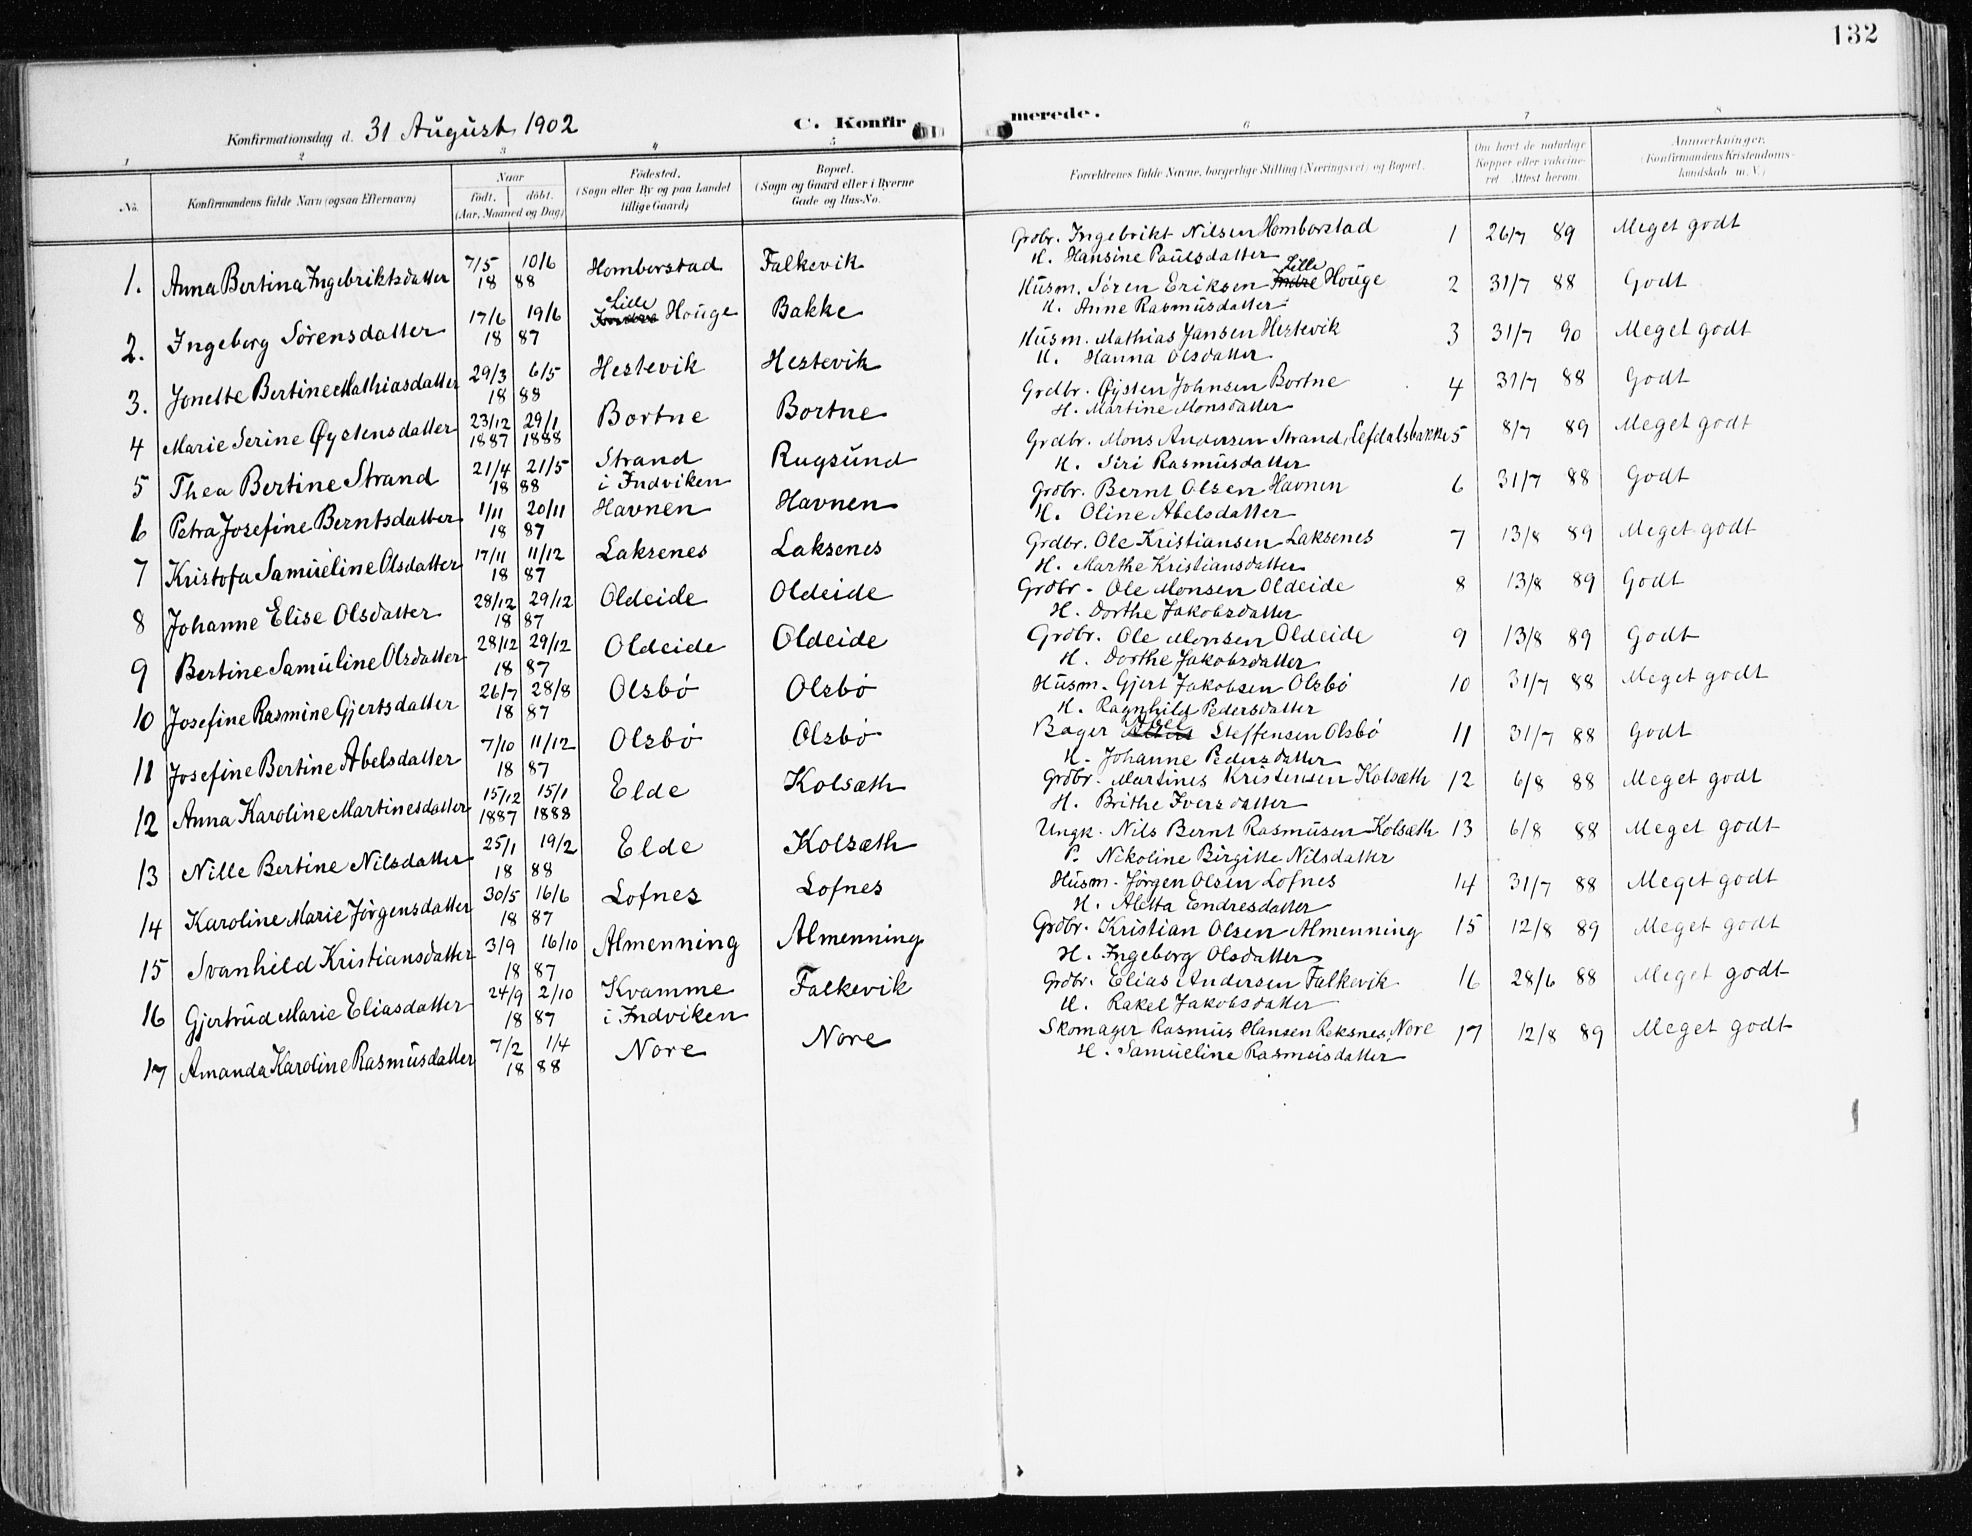 132
Konfirmationsdag d. 31 August 1902 C. Konfirmerede.
1 2 3 4 5 6 7 8
No. Konfirmandens fulde Navn (ogsaa Efternavn) Naar født. döbt. (Aar, Maaned og Dag) Födested. (Sogn eller By og paa Landet tillige Gaard) Bopæl. (Sogn og Gaard eller i Byerne Gade og Hus-No. Forældrenes fulde Navne, borgerlige Stilling (Næringsvei) og Bopæl. Om havt de naturlige Kopper eller vaccineret. Attest herom. Anmerkninger. (Konfirmandens Kristendomskundskab m.V.)
1. Anna Bertina Ingebriktsdatter 7/5 10/6 18 88 Homborstad Falkevik Grdbr. Ingebrikt Nilsen Homborstad 1 26/7 89 Meget godt
H. Hansine Paulsdatter
2. Ingeborg Sørensdatter 17/6 19/6 18 87 Lille Houge Bakke Husm. Søren Eriksen Indre Lille Houge 2 31/7 88 Godt
H. Anne Rasmusdatter
3. Jonette Bertine Mathiasdatter 29/3 6/5 18 88 Hestevik Hestevik Husm. Mathias Jansen Hestevik 3 31/7 90 Meget godt
H. Hanna Olsdatter
4 Marie Serine Øystensdatter 23/12 29/1 1887 1888 Bortne Bortne Grdbr. Øysten Johnsen Bortne 4 31/7 88 Godt
H. Martine Monsdatter
5 Thea Bertine Strand 21/4 21/5 18 88 Strand i Indviken Rugsund Grdbr. Mons Andersen Strand, Lefdalsbakke 5 8/7 89 Meget godt
H. Siri Rasmusdatter
6 Petra Josefine Berntsdatter 1/11 20/11 18 87 Havnen Havnen Grdbr. Bernt Olsen Havnen 6 31/7 88 Godt
H. Oline Abelsdatter
7 Kristofa Samueline Olsdatter 17/11 11/12 18 87 Laksenes Laksenes Grdbr. Ole Kristiansen Laksenes 7 13/8 89 Meget godt
H. Marthe Kristiansdatter
8 Johanne Elise Olsdatter 28/12 29/12 18 87 Oldeide Oldeide Grdbr. Ole Monsen Oldeide 8 13/8 89 Godt
H. Dorthe Jakobsdatter
9 Bertine Samuline Olsdatter 28/12 29/12 18 87 Oldeide Oldeide Grdbr. Ole Monsen Oldeide 9 13/8 89 Godt
H. Dorthe Jakobsdatter
10 Josefine Rasmine Gjertsdatter 26/7 28/8 18 87 Olsbø Olsbø Husm. Gjert Jakobsen Olsbø 10 31/7 88 Meget godt
H. Ragnhild Pedersdatter
11 Josefine Bertine Abelsdatter 7/10 11/12 18 87 Olsbø Olsbø Bager Abel Steffensen Olsbø 11 31/7 88 Godt
H. Johanne Pedersdatter
12 Anna Karoline Martinesdatter 15/12 15/1 1887 1888 Elde Kolsæth Grdbr. Martines Kristensen Kolsæth 12 6/8 88 Meget godt
H. Brithe Iversdatter
13 Nille Bertine Nilsdatter 25/1 19/2 18 88 Elde Kolsæth Ungk. Nils Bernt Rasmusen Kolsæth 13 6/8 88 Meget godt
P. Nikoline Birgitte Nilsdatter
14 Karoline Marie Jørgensdatter 30/5 16/6 18 87 Lofnes Lofnes Husm. Jørgen Olsen Lofnes 14 31/7 88 Meget godt
H. Aletta Endresdatter
15 Svanhild Kristiansdatter 3/9 16/10 18 87 Almenning Almenning Grdbr. Kristian Olsen Almenning 15 12/8 89 Meget godt
H. Ingeborg Olsdatter
16 Gjertrud Marie Eliasdatter 24/9 2/10 18 87 Kvamme i Indviken Falkevik Grdbr. Elias Andersen Falkevik 16 28/6 88 Meget godt
H. Rakel Jakobsdatter
17 Amanda Karoline Rasmusdatter 7/2 1/4 18 88 Nore Nore Skomager Rasmus Hansen Reksnes, Nore 17 12/8 89 Meget godt
H. Samueline Rasmusdatter